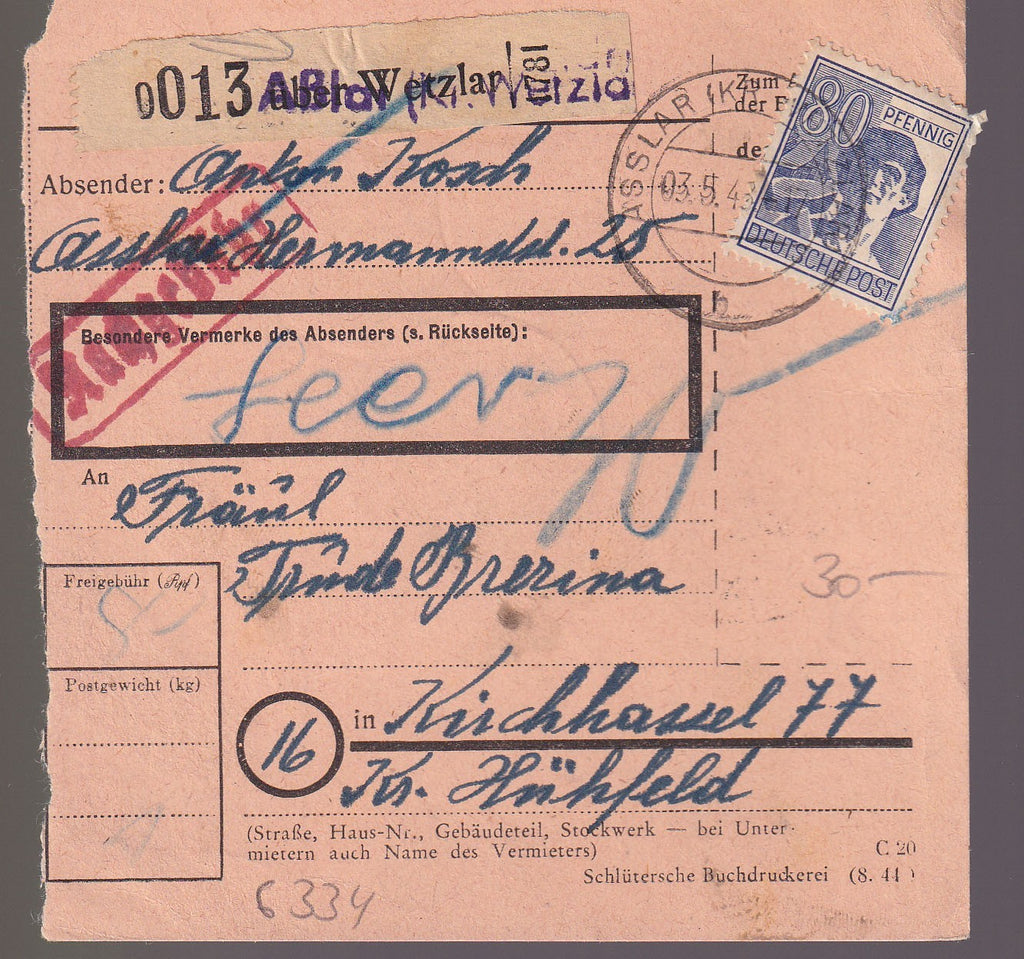 0013 über Wetzlar 1781
Aßlar Kr. Wetzla
Zum
der
de
80 PFENNIG
DEUTSCHE POST
ASSLAR (KR
03.5.48
b
Absender: Anton Kosch
Asslar Hermannstr. 25
Besondere Vermerke des Absenders (s. Rückseite):
Leer
An
Fräul
Trude Brezina
Freigebühr (Rpf)
30 —
Postgewicht (kg)
16 in Kirchhassel 77
Kr. Hühfeld
(Straße, Haus-Nr., Gebäudeteil, Stockwerk — bei Unter-
mietern auch Name des Vermieters)
C 20
Schlütersche Buchdruckerei (8. 44)
6334